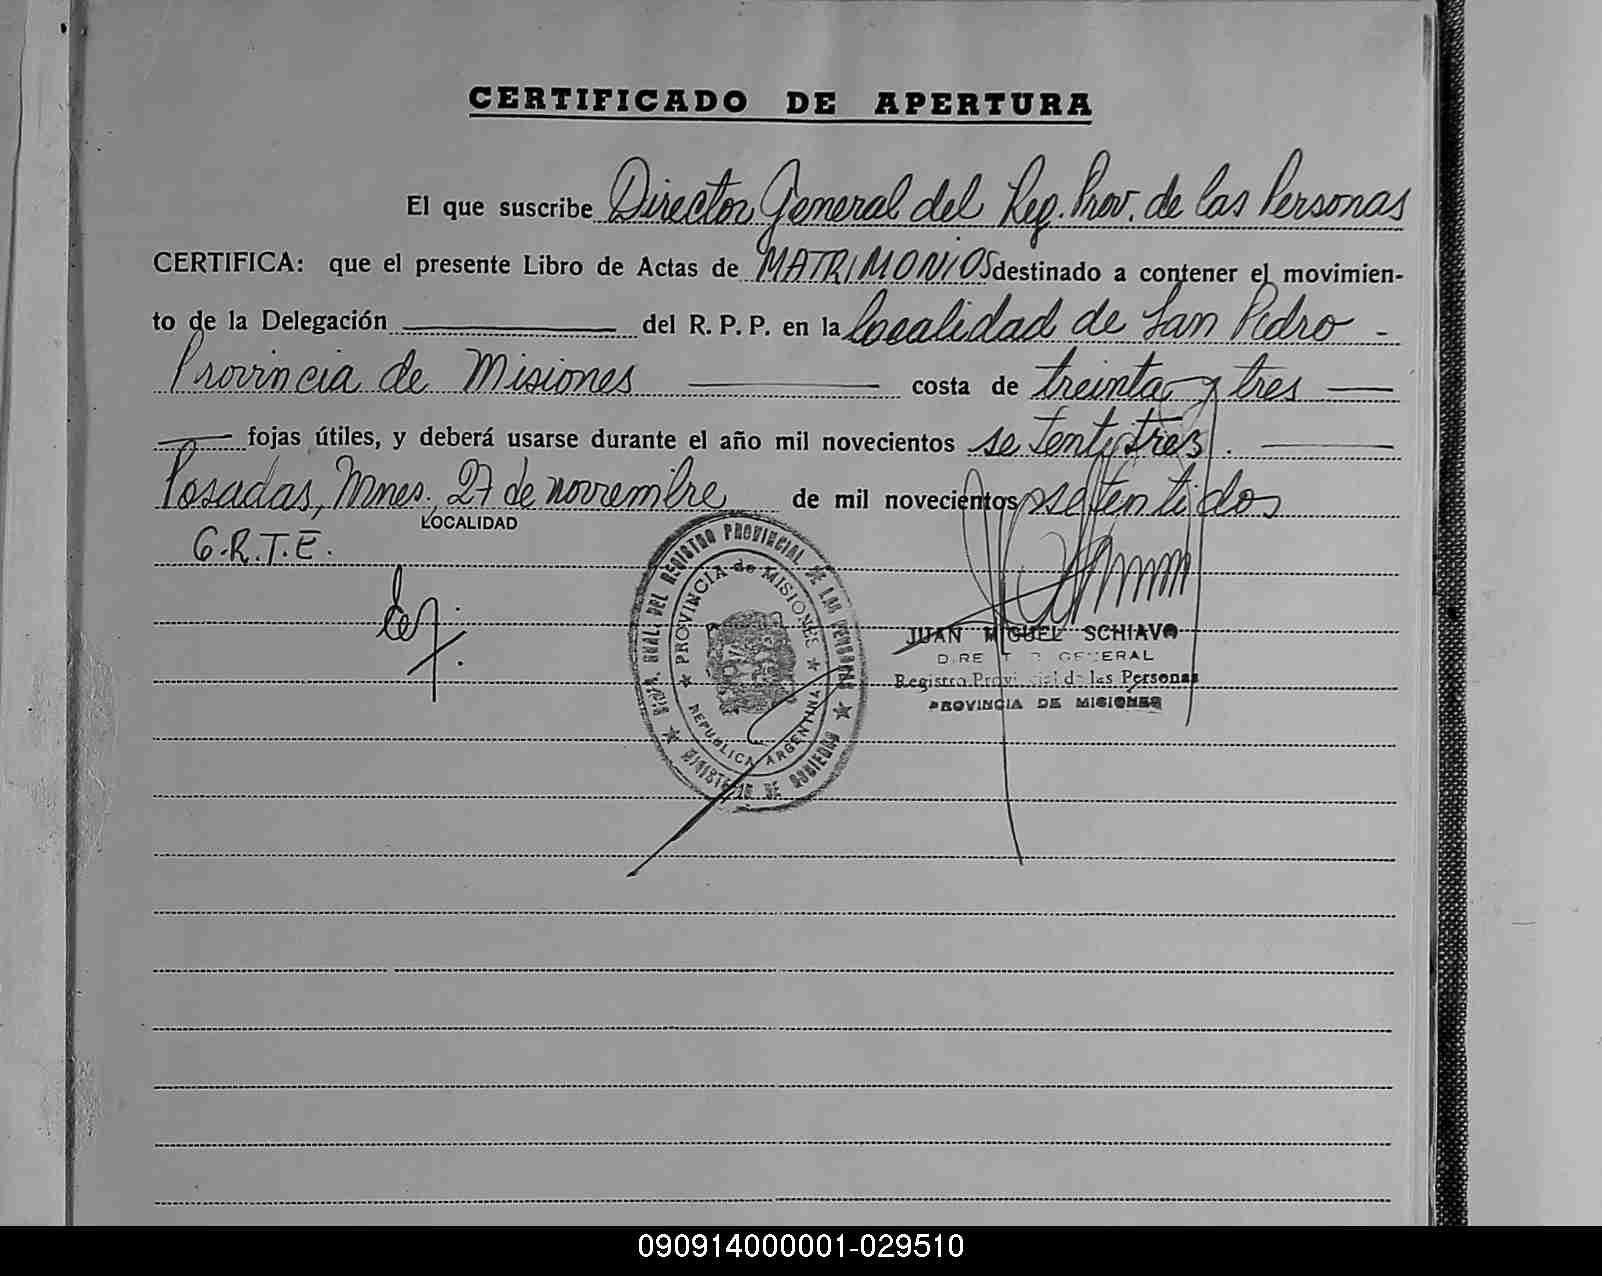 CERTIFICADO DE APERTURA
El que suscribe Director General del Reg. Prov. de las Personas
CERTIFICA: que el presente Libro de Actas de MATRIMONIOS destinado a contener el movimien-
to de la Delegación ——— del R. P. P. en la localidad de San Pedro -
Provincia de Misiones ——— costa de treinta y tres —
— fojas útiles, y deberá usarse durante el año mil novecientos setentitres. ——
Posadas, Mnes. 27 de noviembre de mil novecientos setentidos
LOCALIDAD
G.R.T.E.
REGISTRO PROVINCIAL DE LAS PERSONAS
PROVINCIA de MISIONES
REPUBLICA ARGENTINA
MINISTERIO DE GOBIERNO
JUAN MIGUEL SCHIAVO
DIRECTOR GENERAL
Registro Provincial de las Personas
PROVINCIA DE MISIONES
090914000001-029510